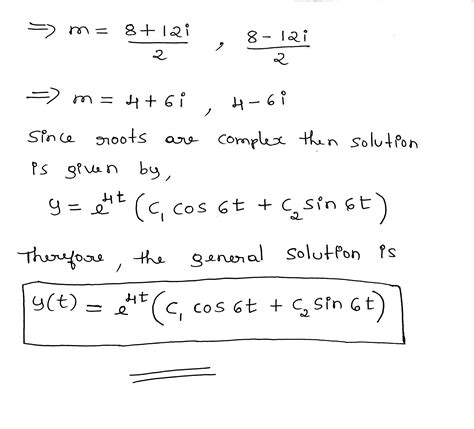 ⇒ m = (8+12i)/2 , (8-12i)/2
⇒ m = 4+6i , 4-6i
Since roots are complex then solution
is given by,
y = e^{4t} (C₁ cos 6t + C₂ sin 6t)
Therefore, the general solution is
y(t) = e^{4t} (C₁ cos 6t + C₂ sin 6t)